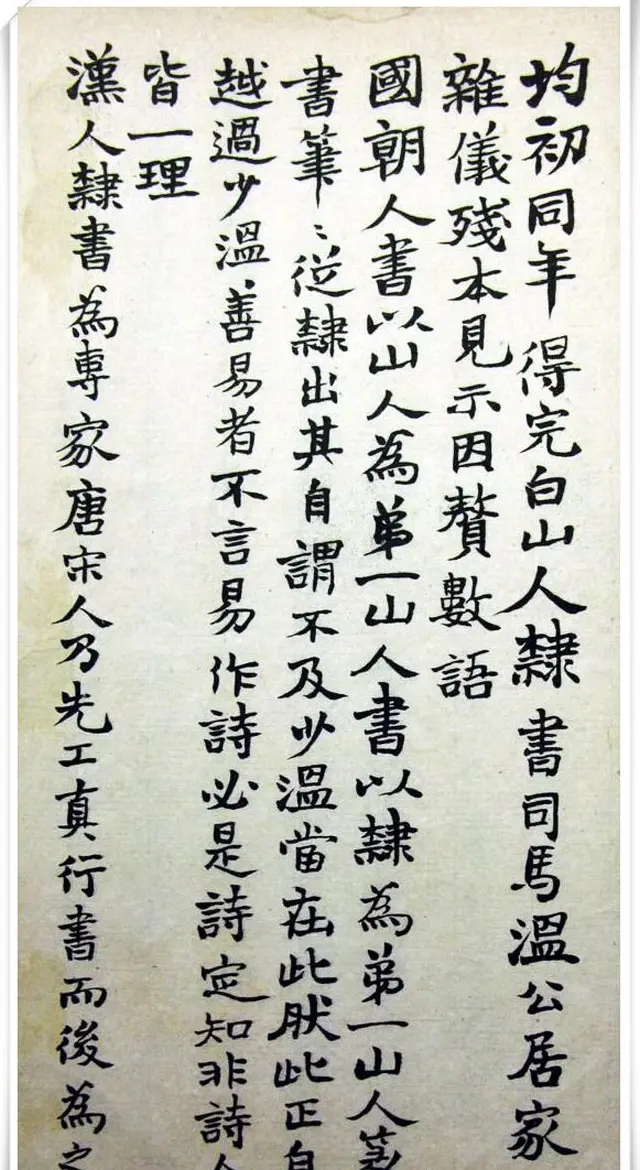 均初同年得完白山人隸書司馬溫公居家
雜儀殘本見示因贅數語
國朝人書以山人為弟一山人書以隸為弟一山人篆
書筆〻從隸出其自謂不及少溫當在此肰此正自
越過少溫善易者不言易作詩必是詩定知非詩人
皆一理
漢人隸書為專家唐宋人乃先工真行書而後為之